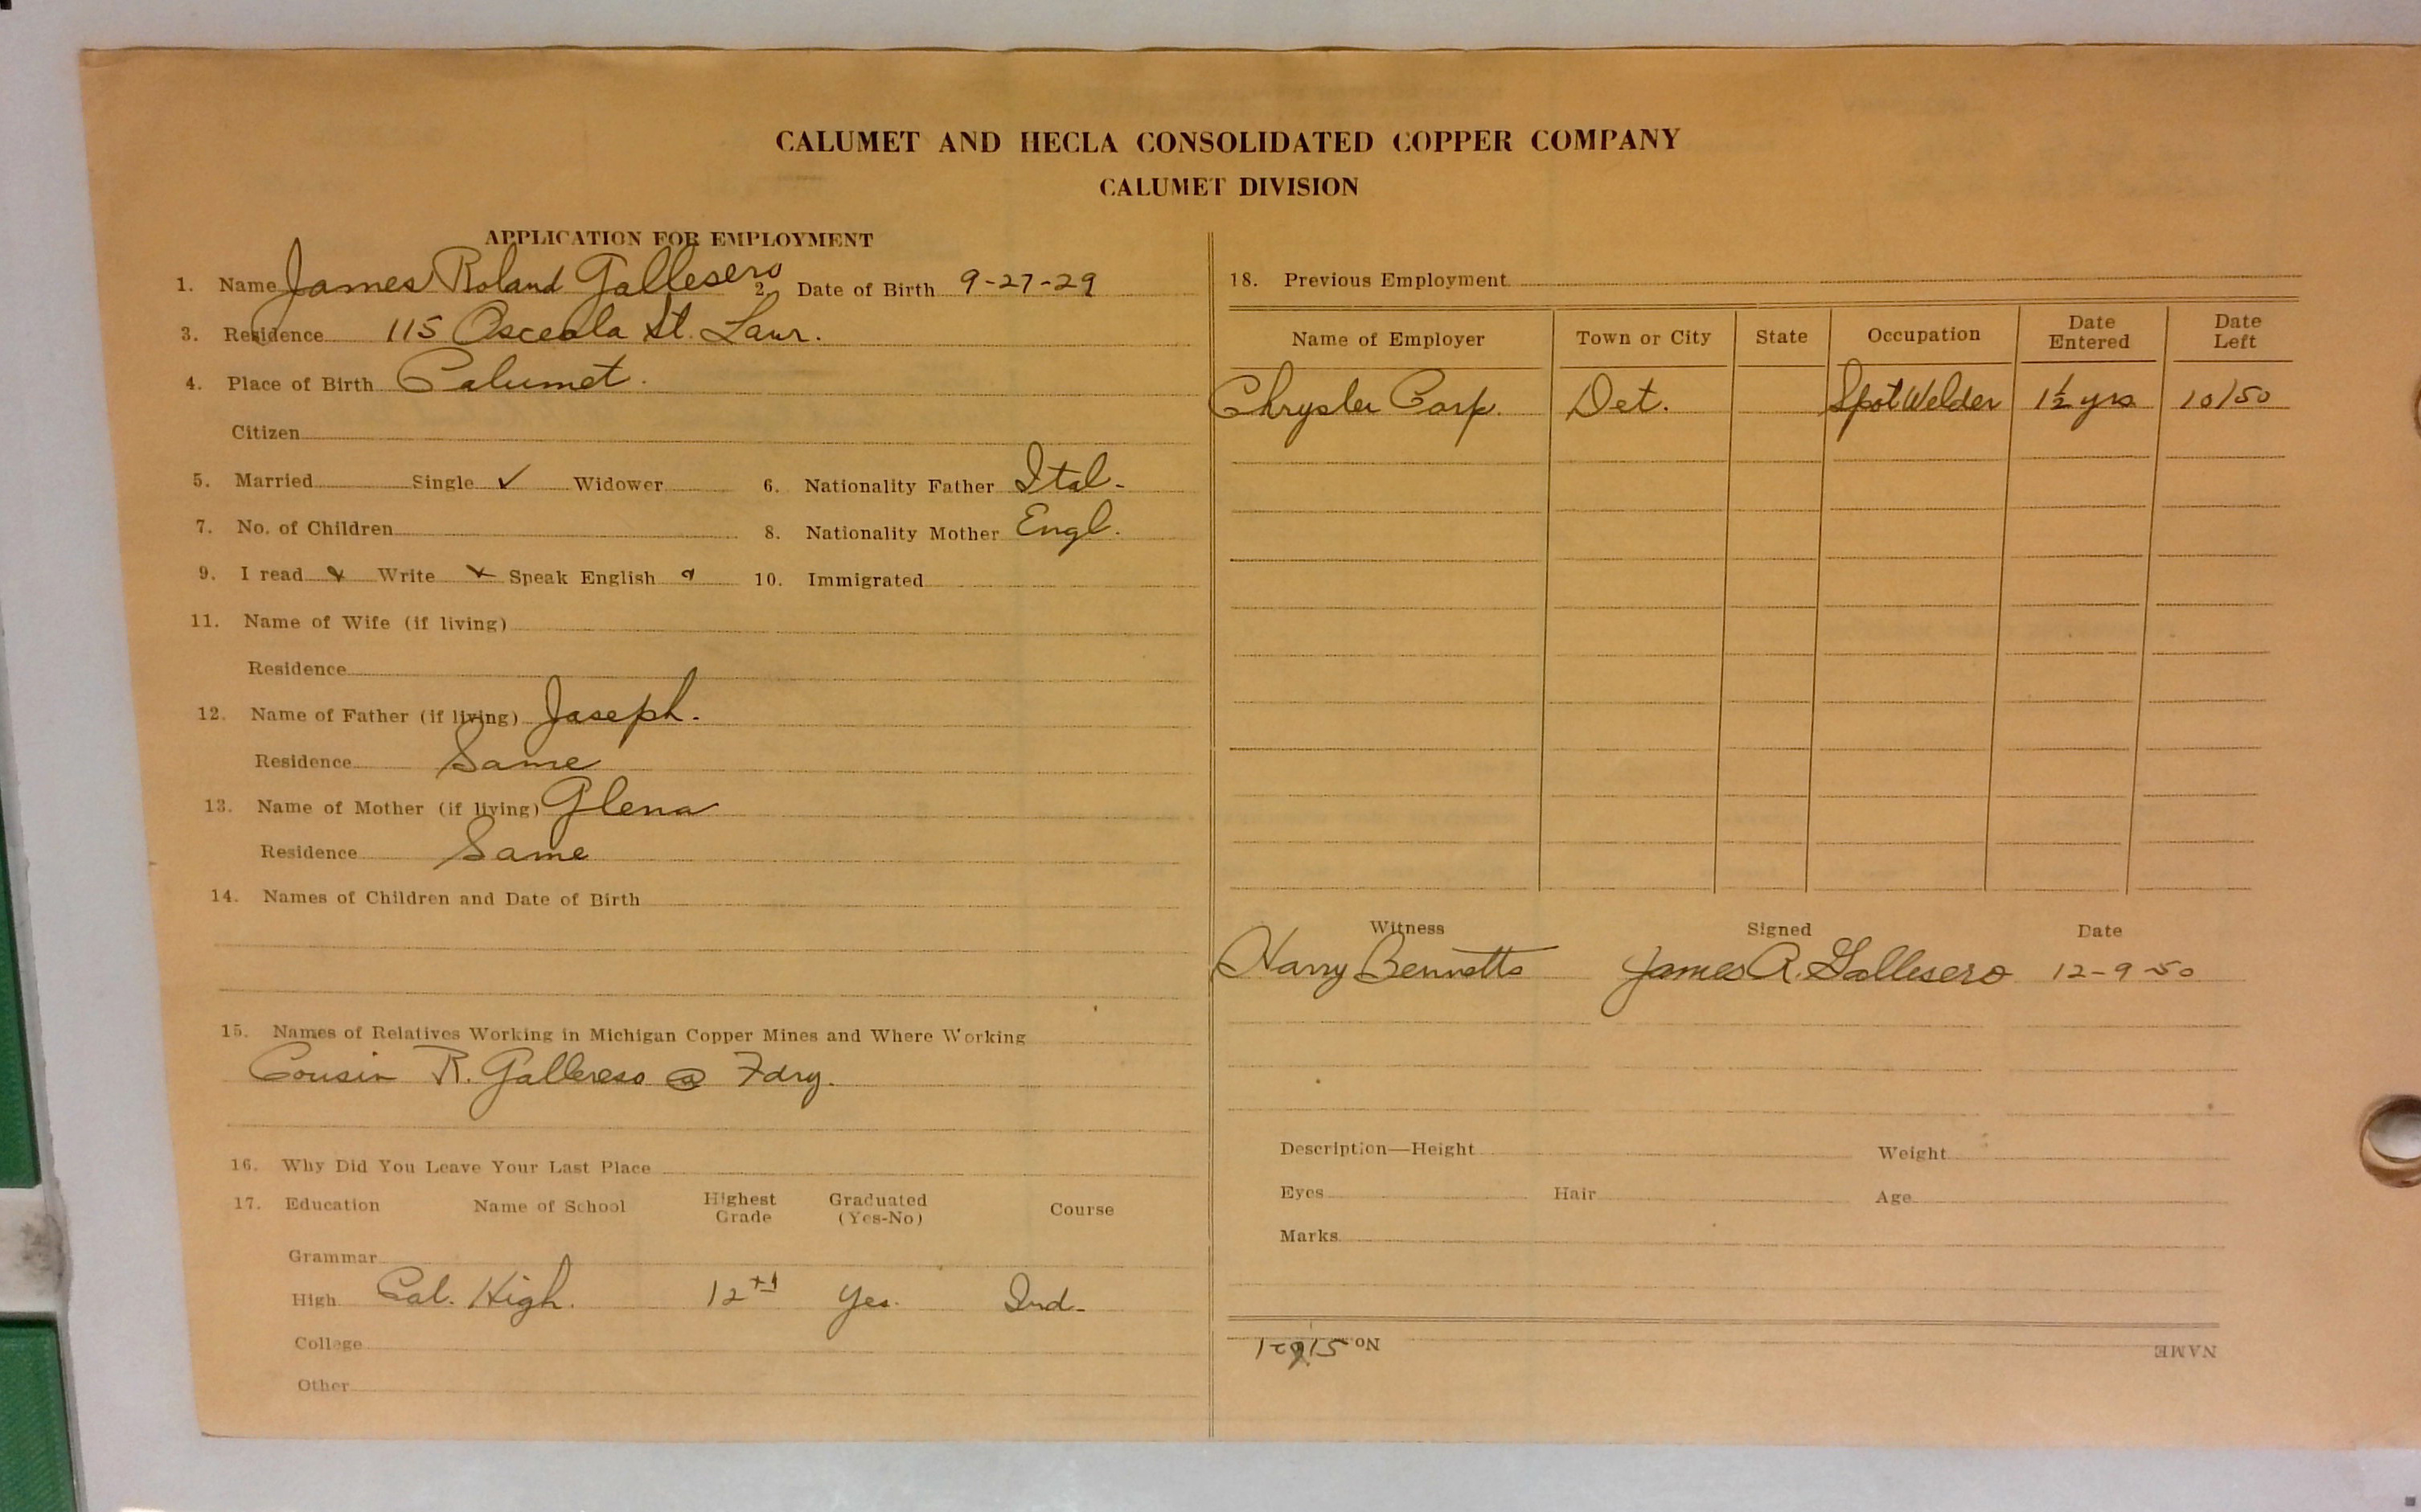 CALUMET AND HECLA CONSOLIDATED COPPER COMPANY
CALUMET DIVISION
APPLICATION FOR EMPLOYMENT
1. Name James Roland Gallesero 2. Date of Birth 9-27-29
3. Residence 115 Osceola St. Laur.
4. Place of Birth Calumet.
Citizen
5. Married Single ✓ Widower 6. Nationality Father Ital.
7. No. of Children 8. Nationality Mother Engl.
9. I read Write Speak English 10. Immigrated
11. Name of Wife (if living)
Residence
12. Name of Father (if living) Joseph.
Residence Same
13. Name of Mother (if living) Glena
Residence Same
14. Names of Children and Date of Birth
15. Names of Relatives Working in Michigan Copper Mines and Where Working
Cousin R. Gallereso @ Fdry.
16. Why Did You Leave Your Last Place
17. Education Name of School Highest Grade Graduated (Yes-No) Course
Grammar
High Cal. High. 12th Yes. Ind.
College
Other
18. Previous Employment
Name of Employer Town or City State Occupation Date Entered Date Left
Chrysler Corp. Det. Spot Welder 1½ yrs 10/50
Witness Signed Date
Harry Bennetts James R. Gallesero 12-9-50
Description—Height Weight
Eyes Hair Age
Marks
NAME No